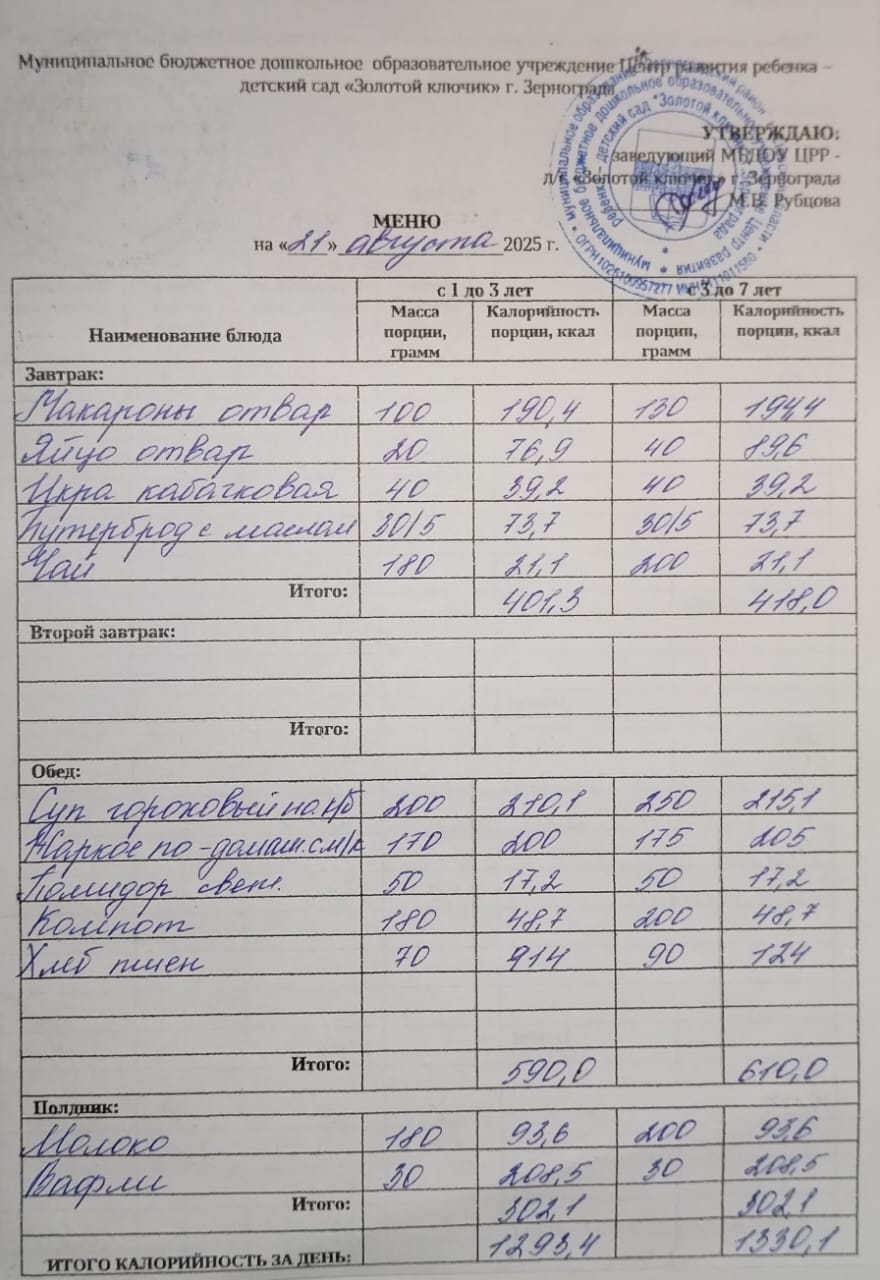 Муниципальное бюджетное дошкольное образовательное учреждение Центр развития ребенка –
детский сад «Золотой ключик» г. Зернограда
УТВЕРЖДАЮ:
заведующий МБДОУ ЦРР -
д/с «Золотой ключик» г. Зернограда
М.В. Рубцова
МЕНЮ
на «21» августа 2025 г.
Наименование блюда с 1 до 3 лет с 3 до 7 лет
Масса порции, грамм Калорийность порции, ккал Масса порции, грамм Калорийность порции, ккал
Завтрак:
Макароны отвар 100 190,4 130 194,4
Яйцо отвар 20 76,9 40 89,6
Икра кабачковая 40 39,2 40 39,2
Бутерброд с маслом 30/5 73,7 30/5 73,7
Чай 180 21,1 200 21,1
Итого: 401,3 418,0
Второй завтрак:
Итого:
Обед:
Суп гороховый на к/б 200 210,1 250 215,1
Жаркое по-домаш. см/к 170 200 175 205
Помидор свеж. 50 17,2 50 17,2
Компот 180 48,7 200 48,7
Хлеб пшен 70 914 90 124
Итого: 590,0 610,0
Полдник:
Молоко 180 93,6 200 93,6
Вафли 30 208,5 30 208,5
Итого: 302,1 302,1
ИТОГО КАЛОРИЙНОСТЬ ЗА ДЕНЬ: 1293,4 1330,1